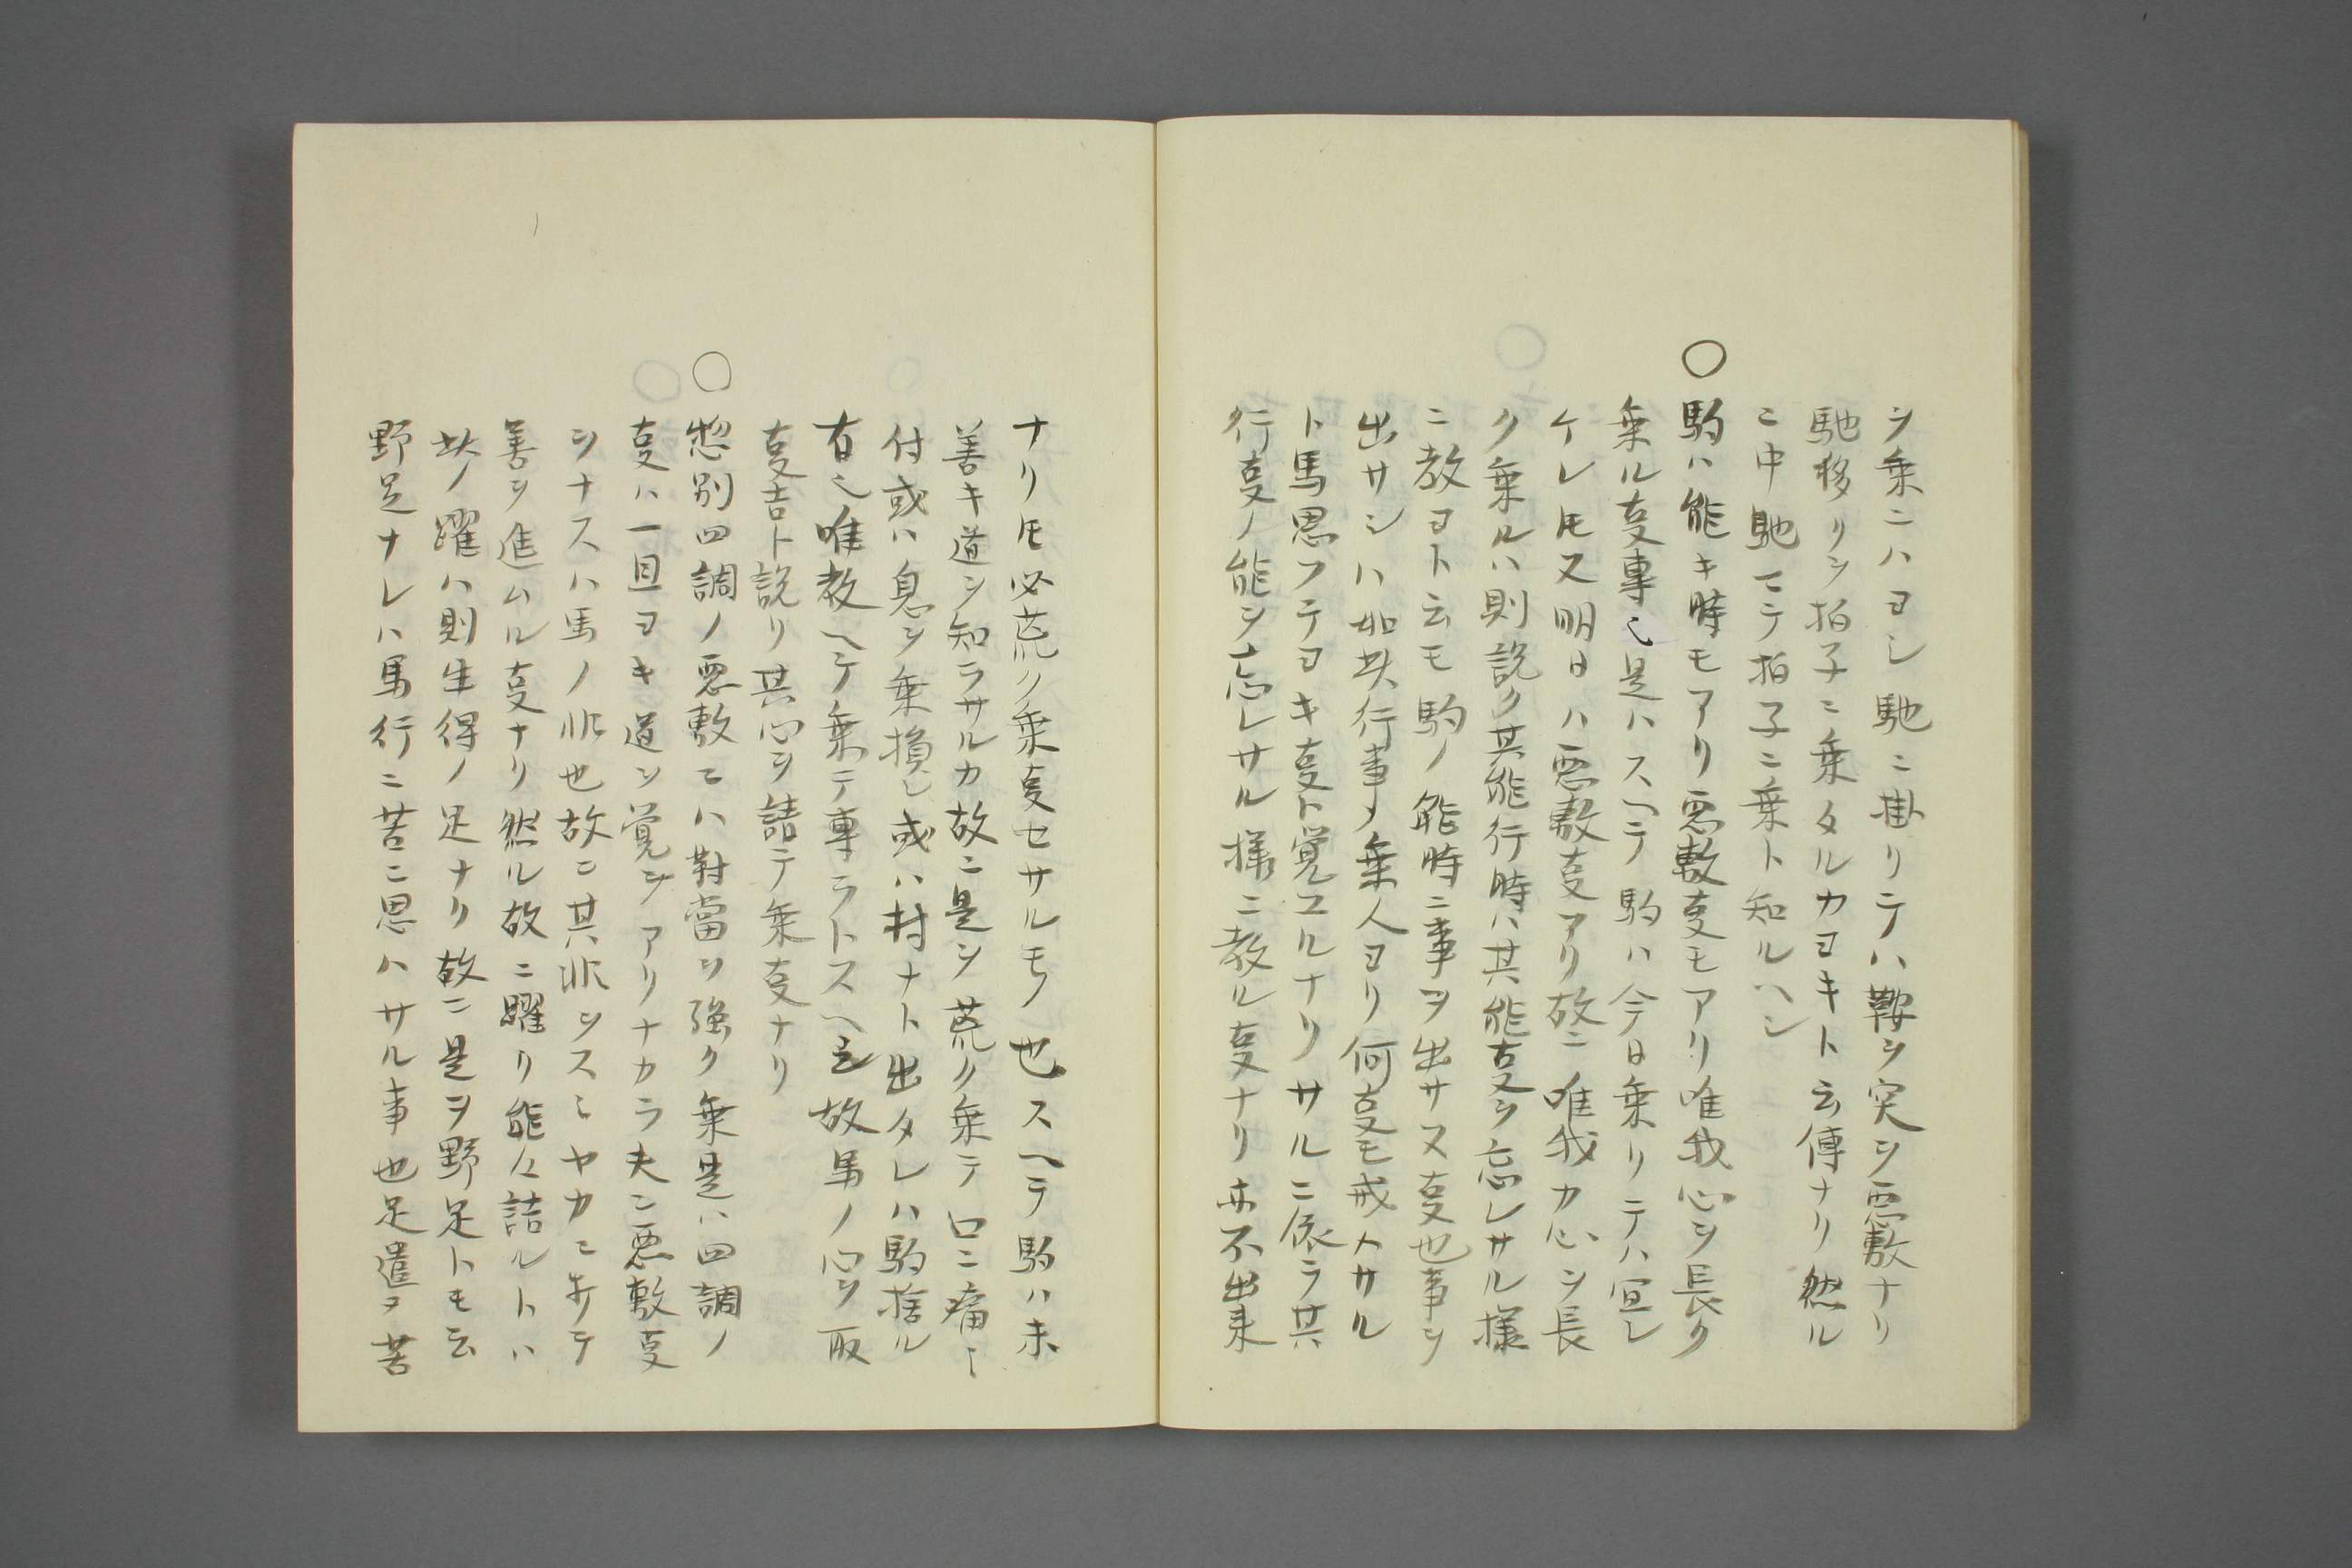 ヲ乗ニハヨシ馳ニ掛リテハ鞍ヲ突ヲ悪敷ナリ
馳移リヲ拍子ニ乗タルカヨキト云傳ナリ然ル
ニ中馳ニテ拍子ニ乗ト知ルヘシ
○駒ハ能キ時モアリ悪敷叓モアリ唯我心ヲ長ク
乗ル叓専也是ハスヘテ駒ハ今日乗リテハ宜シ
ケレ𪜈又明日ハ悪敷叓アリ故ニ唯我カ心ヲ長
ク乗ルハ則説ク其能行時ハ其能叓ヲ忘レサル様
ニ教ヨト云モ駒ノ能時ニ事ヲ出サス叓也事ヲ
出サシハ如此行事ノ乗人ヨリ何叓モ戒メサル
ト馬思フテヨキ叓ト覚ユルナリサルニ依ラ其
行叓ノ能ヲ忘レサル様ニ教ル叓ナリ亦不出来
ナリ𪜈必荒ク乗叓セサルモノ也スヘテ駒ハ未
善キ道ヲ知ラサルカ故ニ是ヲ荒ク乗テ口ニ痛ミ
付或ハ息ヲ乗損シ或ハ村ナト出タレハ駒捨ル
有之唯教ヘテ乗テ専ラトスヘシ故馬ノ心ヲ取
叓吉ト説リ其心ヲ詰テ乗叓ナリ
○惣別四調ノ悪敷ニハ對當ヲ強ク乗是ハ四調ノ
叓ハ一旦ヨキ道ヲ覚ヲアリナカラ夫ニ悪敷叓
ヲナスハ馬ノ非也故ニ其非ヲスミヤカニ斥テ
善ヲ進ムル叓ナリ然ル故ニ躍リ能々詰ルトハ
此ノ躍ハ則生得ノ足ナリ故ニ是ヲ野足トモ云
野足ナレハ馬行ニ苦ニ思ハサル事也足遣ヲ苦